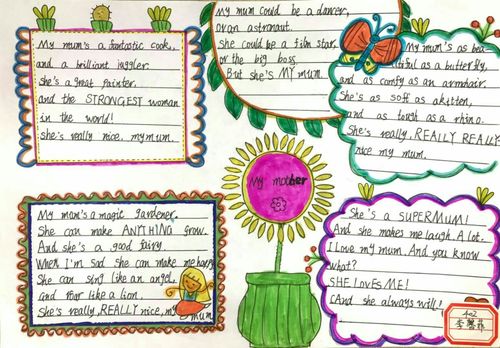 My mum's a fantastic cook,
and a brilliant juggler.
She's a great painter.
and the STRONGEST woman
in the world!
She's really nice, my mum.
My mum could be a dancer,
or an astronaut.
She could be a film star.
or the big boss.
But she's MY mum.
My mum's as bea-
utiful as a butterfly,
and as comfy as an armchair.
She's as soft as a kitten,
and as tough as a rhino.
She's really, REALLY REALLY
nice my mum.
My mother
My mum's a magic gardener.
She can make ANYTHING grow.
And she's a good fairy.
When I'm sad she can make me happy.
She can sing like an angel,
and roar like a lion.
She's really, REALLY nice, my mum
She's a SUPERMUM!
And she makes me laugh. A lot.
I love my mum. And you know
what?
SHE LOVES ME!
(And she always will!)
402